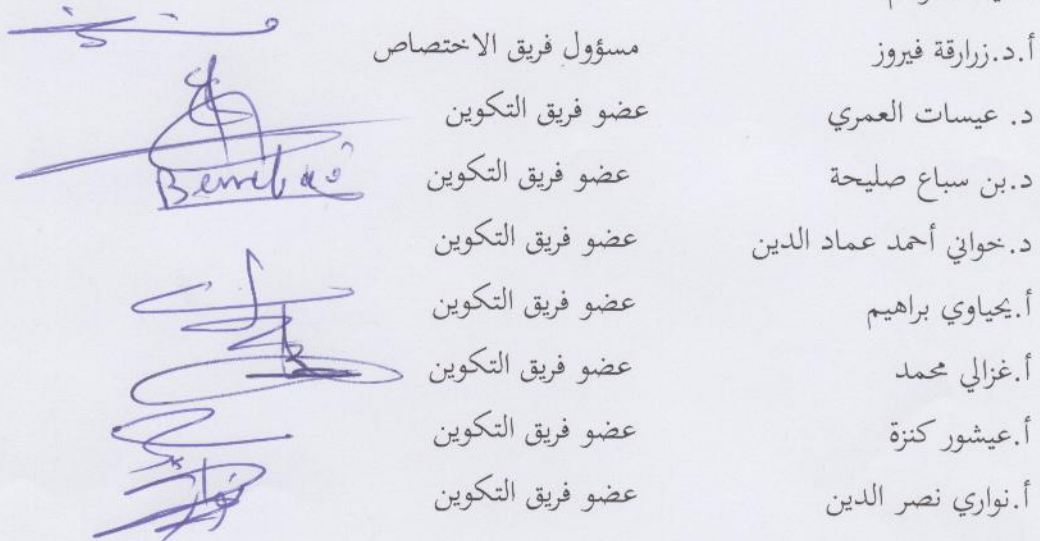 أ.د.زرارقة فيروز مسؤول فريق الاختصاص
د. عيسات العمري عضو فريق التكوين
د.بن سباع صليحة عضو فريق التكوين
د.خواني أحمد عماد الدين عضو فريق التكوين
أ.يحياوي براهيم عضو فريق التكوين
أ.غزالي محمد عضو فريق التكوين
أ.عيشور كنزة عضو فريق التكوين
أ.نواري نصر الدين عضو فريق التكوين